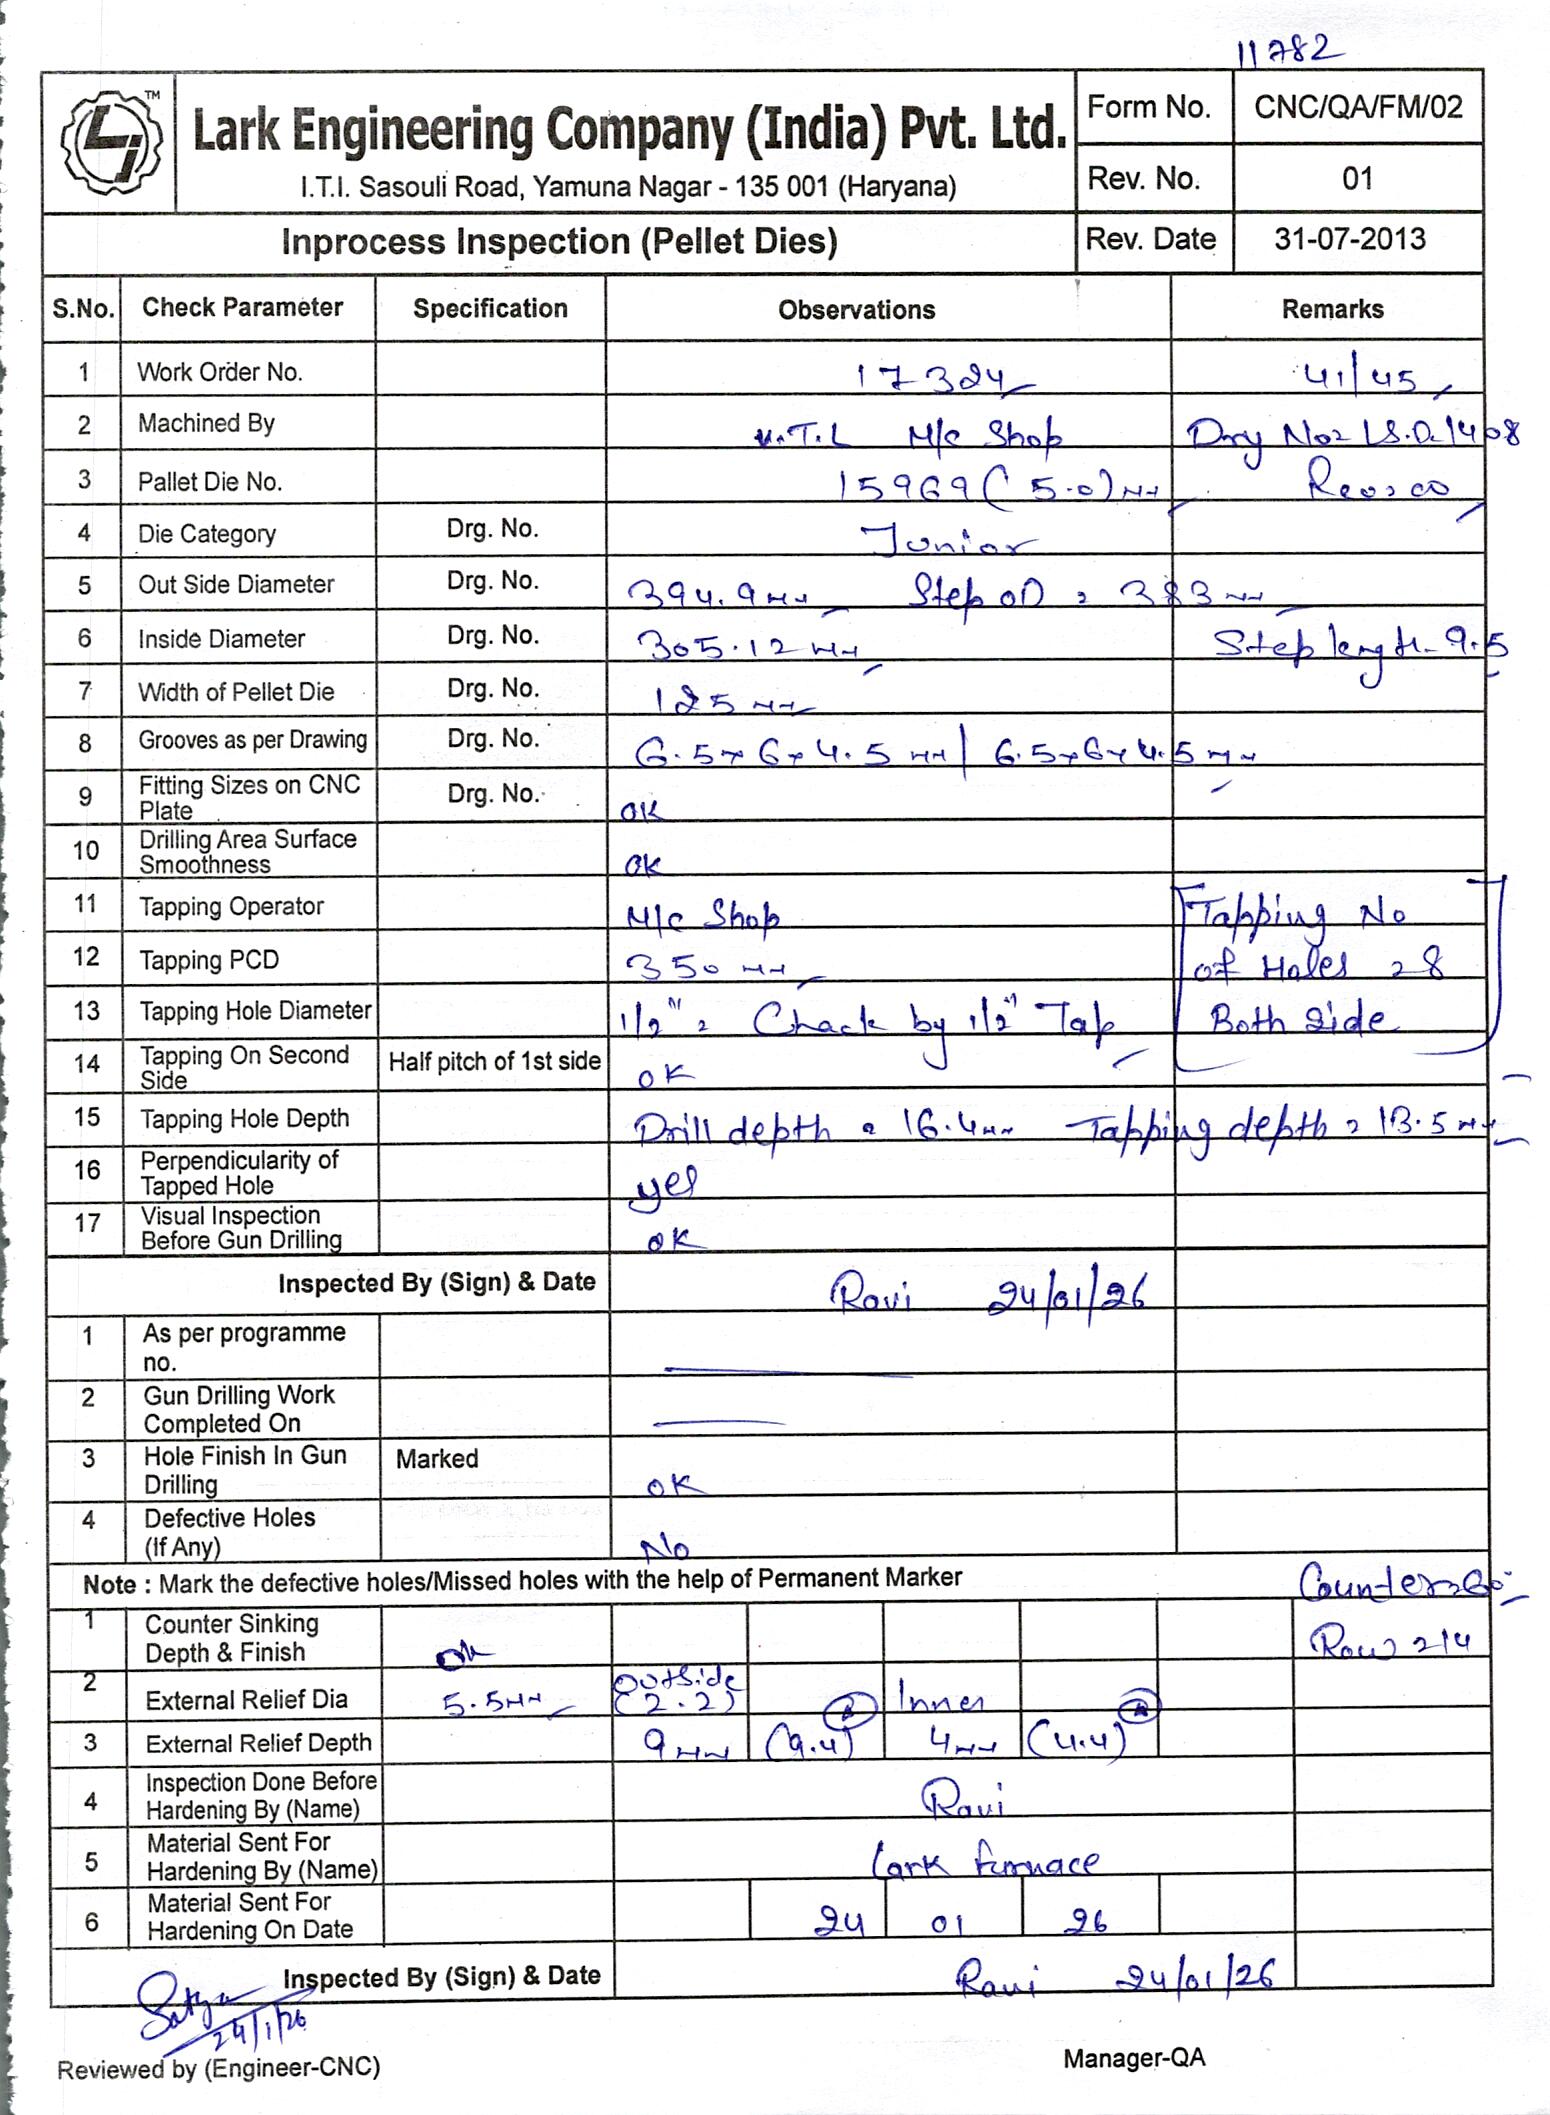 11782
TM
Lark Engineering Company (India) Pvt. Ltd.
I.T.I. Sasouli Road, Yamuna Nagar - 135 001 (Haryana)
Form No. CNC/QA/FM/02
Rev. No. 01
Inprocess Inspection (Pellet Dies) Rev. Date 31-07-2013
S.No. Check Parameter Specification Observations Remarks
1 Work Order No. 17324 41/45
2 Machined By M/c Shop
3 Pallet Die No. 15969 (5.0) mm
4 Die Category Drg. No. Junior
5 Out Side Diameter Drg. No. 394.9 mm Step OD = 383 mm
6 Inside Diameter Drg. No. 305.12 mm Step length - 9.5
7 Width of Pellet Die Drg. No. 125 mm
8 Grooves as per Drawing Drg. No. 6.5x6x4.5 mm | 6.5x6x4.5 mm
9 Fitting Sizes on CNC Plate Drg. No. OK
10 Drilling Area Surface Smoothness OK
11 Tapping Operator M/c Shop Tapping No
12 Tapping PCD 350 mm of Holes = 8
13 Tapping Hole Diameter 1/2" = Chack by 1/2" Tap Both Side
14 Tapping On Second Side Half pitch of 1st side OK
15 Tapping Hole Depth Drill depth = 16.4mm Tapping depth = 13.5 mm
16 Perpendicularity of Tapped Hole yes
17 Visual Inspection Before Gun Drilling OK
Inspected By (Sign) & Date Ravi 24/01/26
1 As per programme no.
2 Gun Drilling Work Completed On
3 Hole Finish In Gun Drilling Marked OK
4 Defective Holes (If Any) No
Note : Mark the defective holes/Missed holes with the help of Permanent Marker
1 Counter Sinking Depth & Finish OK Row = 14
2 External Relief Dia 5.5mm Outside (2.2) Inner
3 External Relief Depth 9mm (9.4) 4mm (4.4)
4 Inspection Done Before Hardening By (Name) Ravi
5 Material Sent For Hardening By (Name) Lark furnace
6 Material Sent For Hardening On Date 24 01 26
Inspected By (Sign) & Date Ravi 24/01/26
24/1/26
Reviewed by (Engineer-CNC) Manager-QA